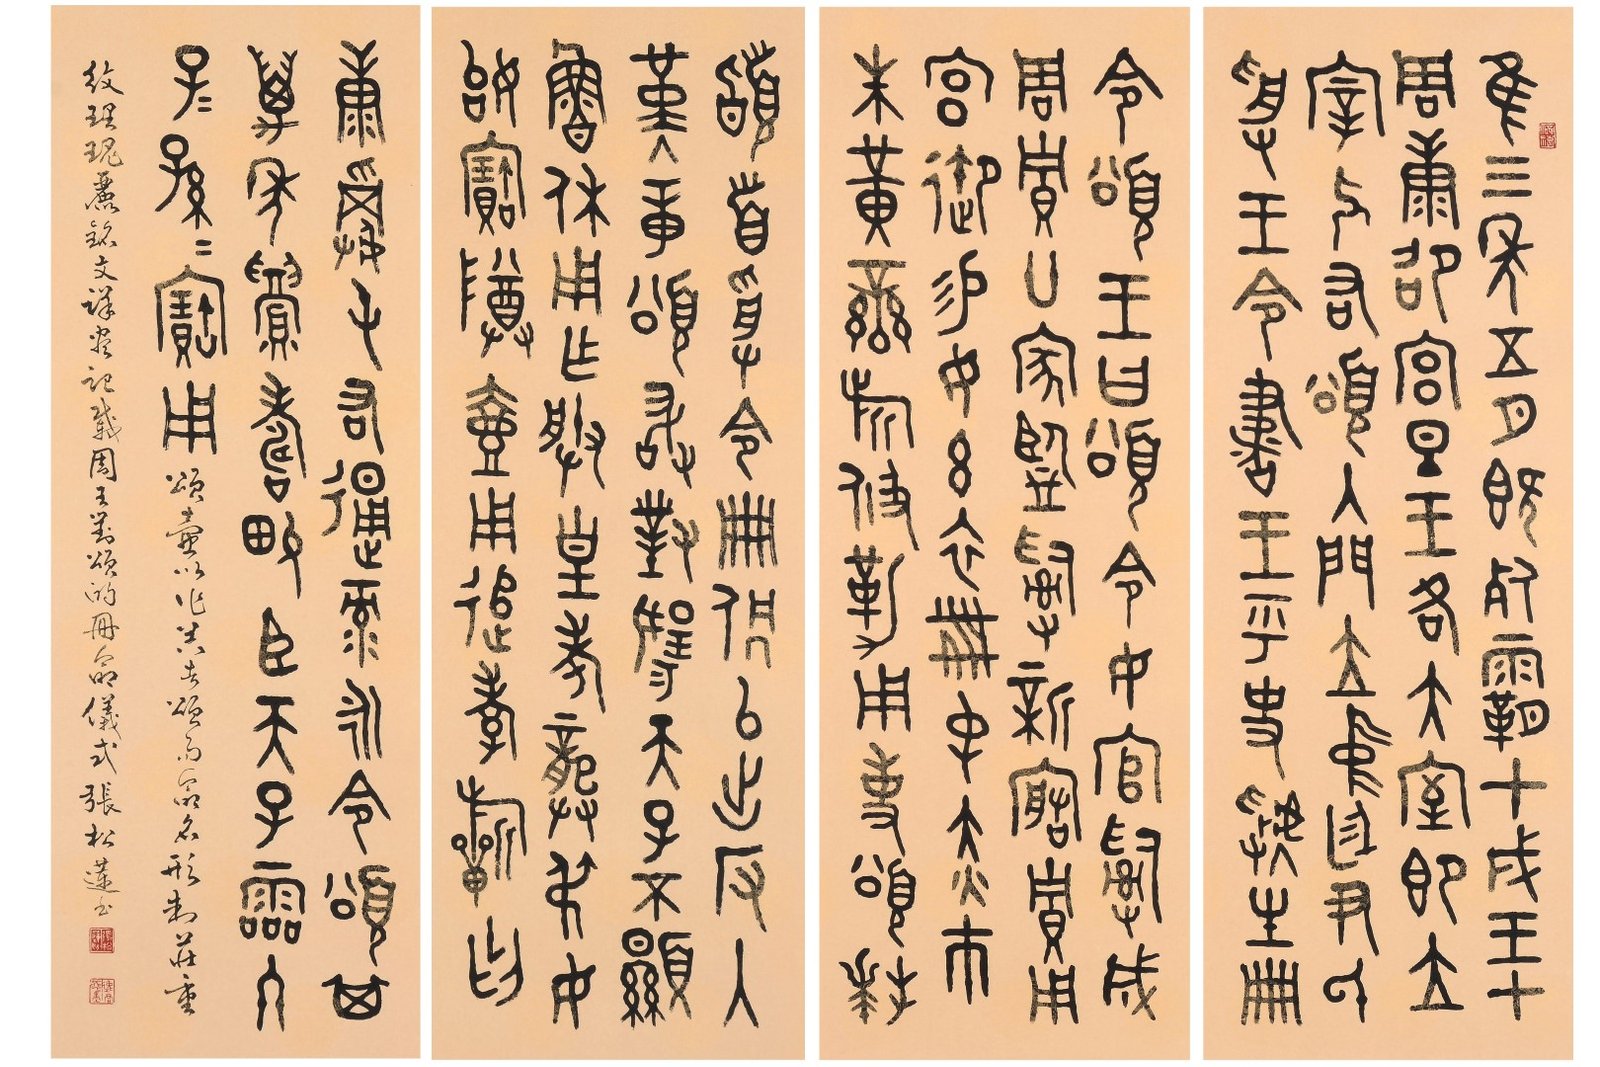 隹三年五月既死霸甲戌王才
周康卲宮旦王各大室即立
宰弘右頌入門立中廷尹氏
受王令書王乎史虢生冊
令頌王曰頌令女官𤔲成
周貯廿家監𤔲新造貯用
宮御易女玄衣黹屯赤巿
朱黃䜌旂攸勒用事頌拜
𩒨首受令冊佩以出反入
堇章頌敢對揚天子不顯
魯休用乍朕皇考龔弔母
姒寶尊壺用追孝祈匄
康𠔌屯右通彔永令頌其
萬年眉壽畯臣天子霝冬
子=孫=寶用
頌壺以作器者頌而命名形制莊重
紋理瑰麗銘文詳盡記載周王對頌的冊命儀式張松蓮書